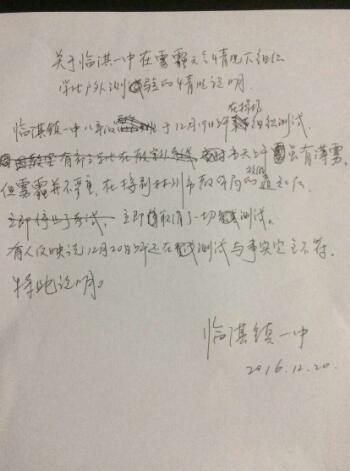 关于临淇一中在雾霾天气情况下组织
学生户外测验的情况说明
临淇镇一中八年级于12月19日下午在操场组织测试。
当天下午虽有薄雾,
但雾霾并不严重,在接到林州市教体局的通知后
立即停止考试,立即取消了一切测试。
有人反映说12月20日下午还在测试与事实完全不符。
特此说明。
临淇镇一中
2016.12.20.